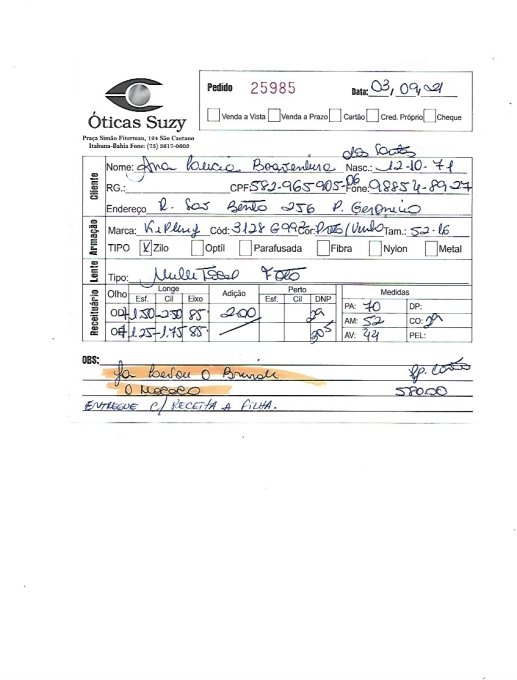 Pedido 25985 Data: 03/09/21
Venda a Vista Venda a Prazo Cartão Cred. Próprio Cheque
Óticas Suzy
Praça Simão Fiterman, 104 São Caetano
Itabuna-Bahia Fone: (75) 5617-0605
dos Santos
Cliente
Nome: Ana Boaventura Nasc.: 12-10-71
RG.: CPF 582-965905-06 Fone: 98854-8927
Endereço R. São Bento 256 P. Geronimo
Armação
Marca: Kipling Cód: 3128 G992 Cor: Preto/Vinho Tam.: 52-16
TIPO X Zilo Optil Parafusada Fibra Nylon Metal
Lente
Tipo: Multifocal Foto
Receituário
Olho Longe Adição Perto Medidas
Esf. Cil Eixo Esf. Cil DNP
OD +1,50 -2,50 85 2,00 29 PA: 70 DP:
OE +1,25 -1,75 85 30,5 AM: 52 CO: 29
AV: 44 PEL:
OBS: Ja levou o Brinde
O 580,00
ENTREGUE C/ RECEITA A FILHA.